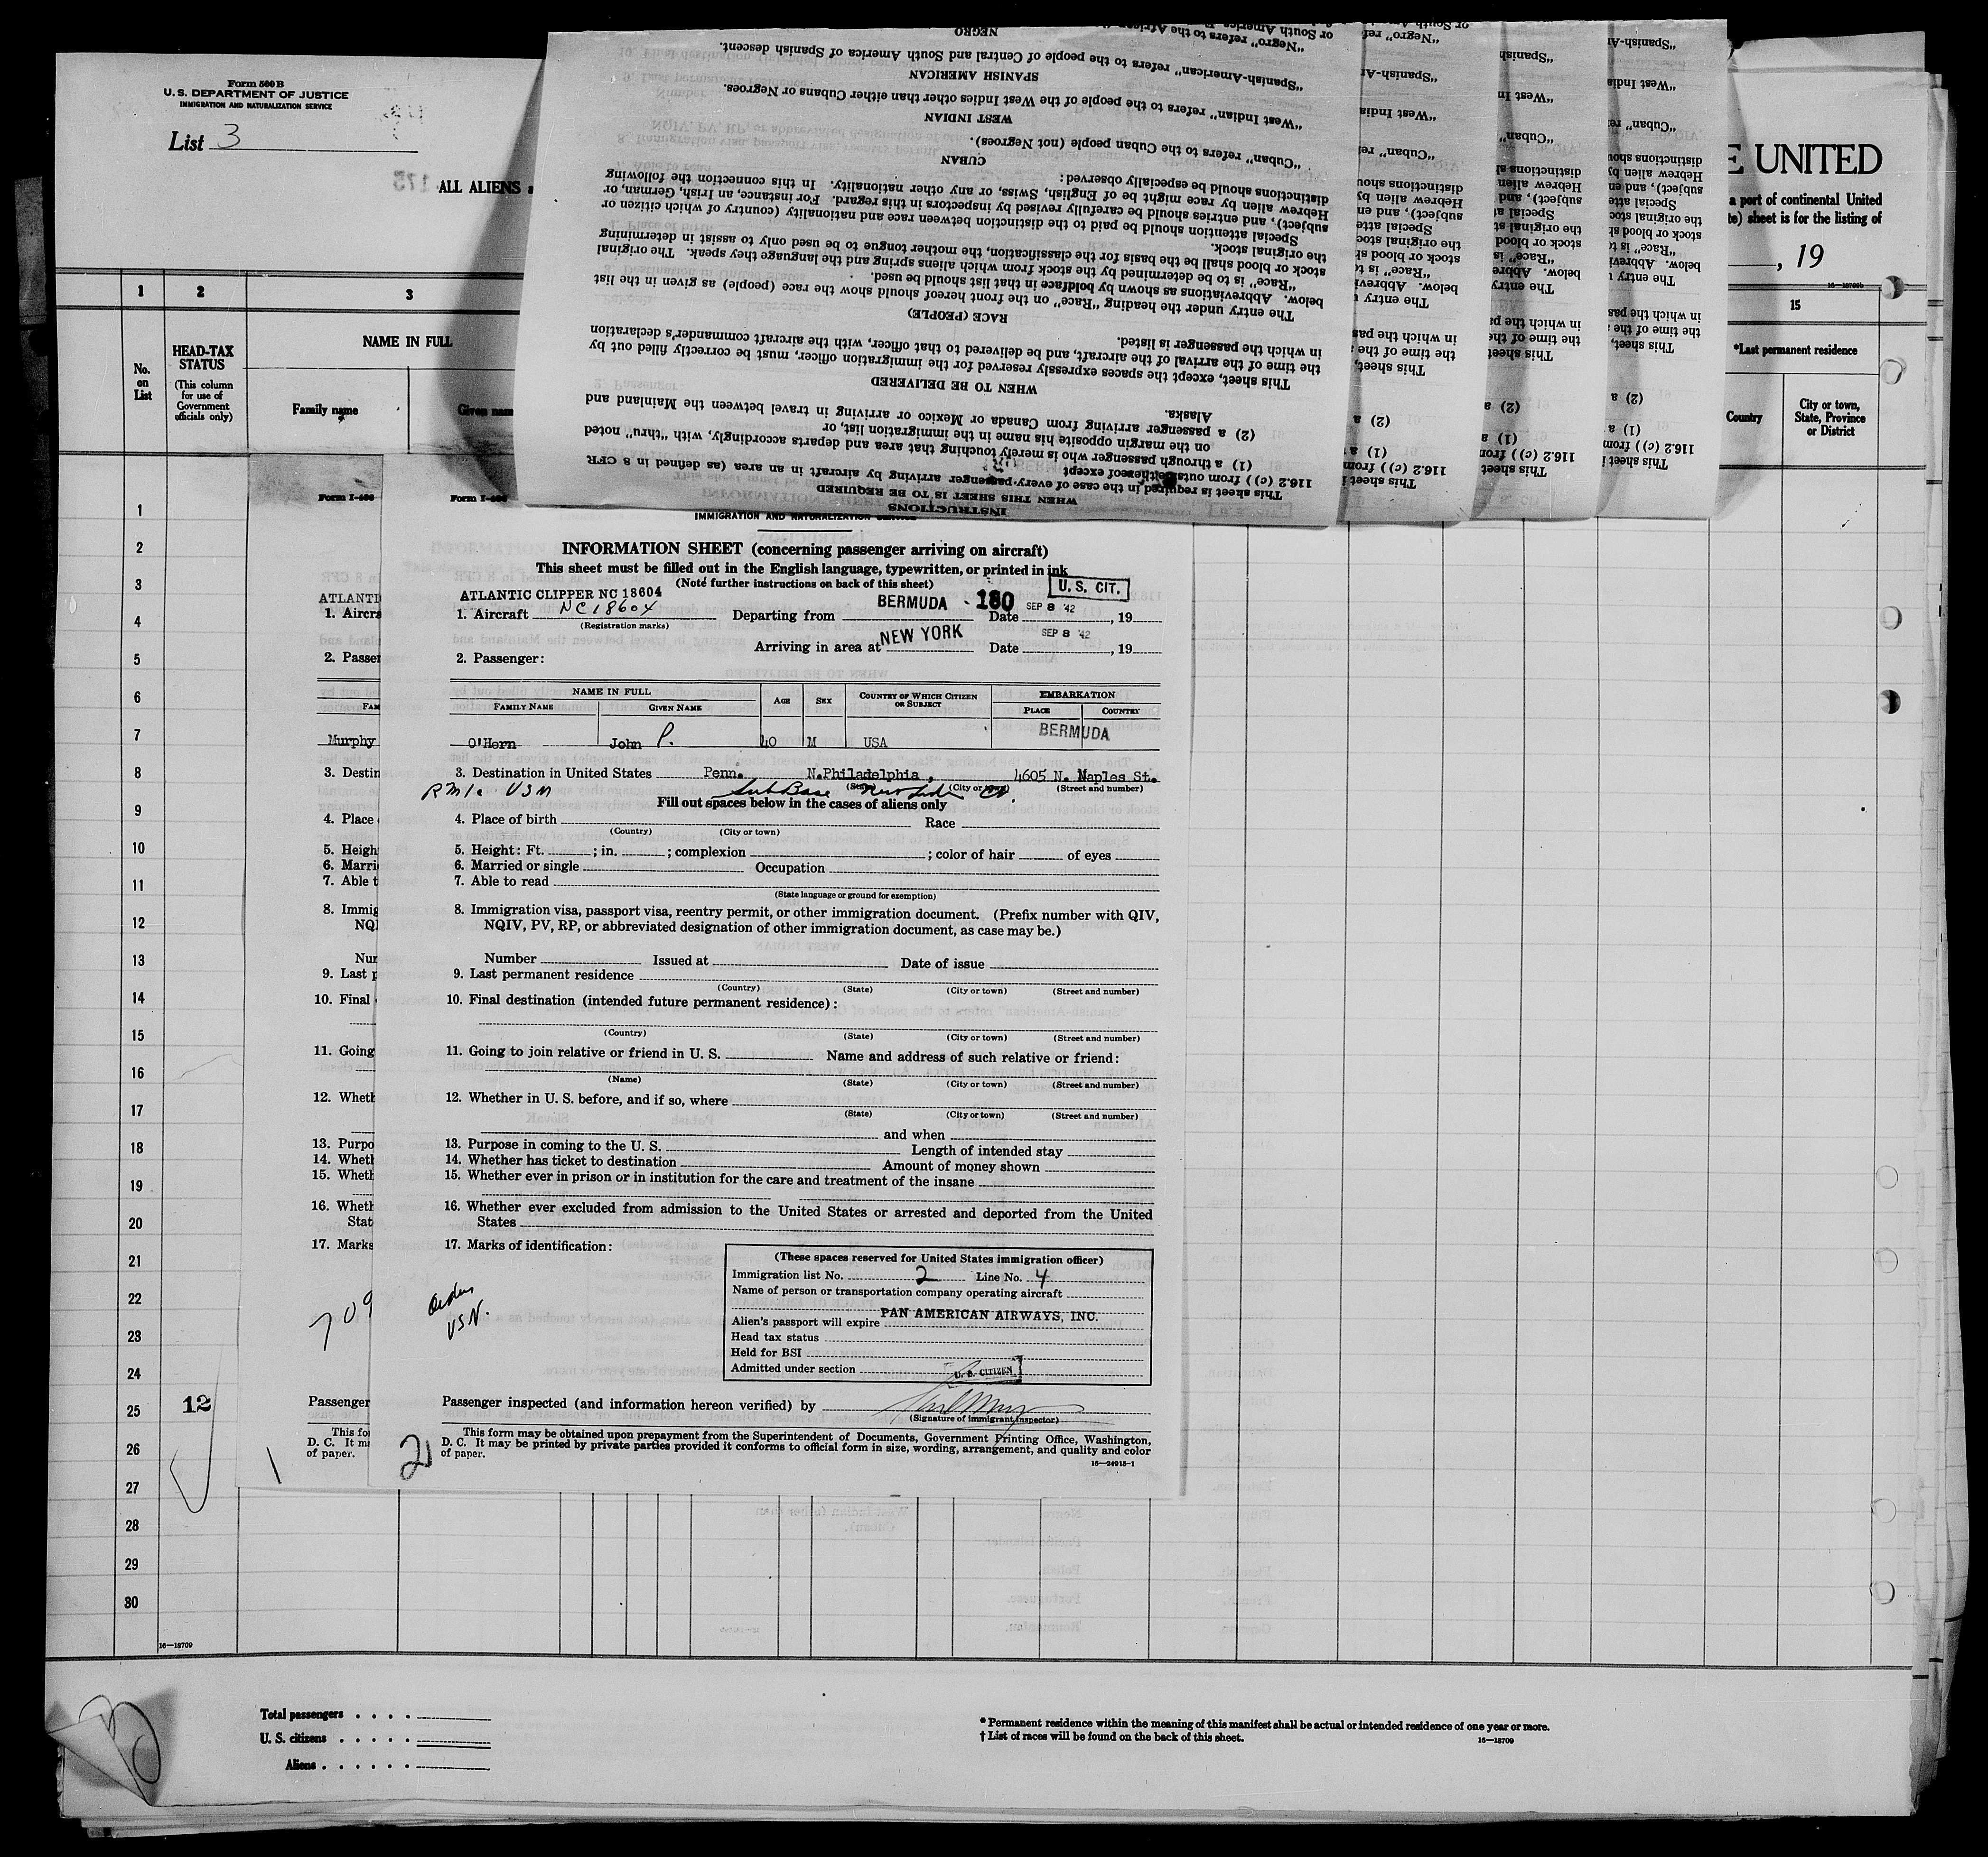 Form 500 B
U. S. DEPARTMENT OF JUSTICE
IMMIGRATION AND NATURALIZATION SERVICE
List 3
175
ALL ALIENS
E UNITED
a port of continental United
sheet is for the listing of
, 19
16—18709b
1 2 3 15
No. on List
HEAD-TAX STATUS
(This column for use of Government officials only)
NAME IN FULL
Family name
Given name
*Last permanent residence
Country
City or town, State, Province or District
INSTRUCTIONS
WHEN THIS SHEET IS TO BE REQUIRED
This sheet is required in the case of every passenger arriving by aircraft in an area (as defined in 8 CFR
116.2 (c)) from outside thereof except
(1) a through passenger who is merely touching that area and departs accordingly, with "thru" noted
on the margin opposite his name in the immigration list, or
(2) a passenger arriving from Canada or Mexico or arriving in travel between the Mainland and
Alaska.
WHEN TO BE DELIVERED
This sheet, except the spaces expressly reserved for the immigration officer, must be correctly filled out by
the time of the arrival of the aircraft, and be delivered to that officer, with the aircraft commander's declaration
in which the passenger is listed.
RACE (PEOPLE)
The entry under the heading "Race" on the front hereof should show the race (people) as given in the list
below. Abbreviations as shown by boldface in that list should be used.
"Race" is to be determined by the stock from which aliens spring and the language they speak. The original
stock or blood shall be the basis for the classification, the mother tongue to be used only to assist in determining
the original stock.
Special attention should be paid to the distinction between race and nationality (country of which citizen or
subject), and entries should be carefully revised by inspectors in this regard. For instance, an Irish, German, or
Hebrew alien by race might be of English, Swiss, or any other nationality. In this connection the following
distinctions should be especially observed:
CUBAN
"Cuban" refers to the Cuban people (not Negroes).
WEST INDIAN
"West Indian" refers to the people of the West Indies other than either Cubans or Negroes.
SPANISH AMERICAN
"Spanish-American" refers to the people of Central and South America of Spanish descent.
NEGRO
"Negro" refers to the African
Form I-466
Form I-466
IMMIGRATION AND NATURALIZATION SERVICE
INFORMATION SHEET (concerning passenger arriving on aircraft)
This sheet must be filled out in the English language, typewritten, or printed in ink
(Note further instructions on back of this sheet)
U. S. CIT.
ATLANTIC CLIPPER NC 18604
1. Aircraft NC18604 Departing from BERMUDA 180 Date SEP 8 '42, 19
(Registration marks)
Arriving in area at NEW YORK Date SEP 8 '42, 19
2. Passenger:
NAME IN FULL AGE SEX COUNTRY OF WHICH CITIZEN OR SUBJECT EMBARKATION
FAMILY NAME GIVEN NAME PLACE COUNTRY
O'Hern John P. 40 M USA BERMUDA
3. Destination in United States Penn. N.Philadelphia, 4605 N. Naples St.
(State) (City or town) (Street and number)
RM1c USN Sub Base New London Ct.
Fill out spaces below in the cases of aliens only
4. Place of birth Race
(Country) (City or town)
5. Height: Ft. ; in. ; complexion ; color of hair of eyes
6. Married or single Occupation
7. Able to read
(State language or ground for exemption)
8. Immigration visa, passport visa, reentry permit, or other immigration document. (Prefix number with QIV,
NQIV, PV, RP, or abbreviated designation of other immigration document, as case may be.)
Number Issued at Date of issue
9. Last permanent residence
(Country) (State) (City or town) (Street and number)
10. Final destination (intended future permanent residence):
(Country) (State) (City or town) (Street and number)
11. Going to join relative or friend in U. S. Name and address of such relative or friend:
(Name) (State) (City or town) (Street and number)
12. Whether in U. S. before, and if so, where
(State) (City or town) (Street and number)
and when
13. Purpose in coming to the U. S. Length of intended stay
14. Whether has ticket to destination Amount of money shown
15. Whether ever in prison or in institution for the care and treatment of the insane
16. Whether ever excluded from admission to the United States or arrested and deported from the United
States
17. Marks of identification:
Orders
USN.
(These spaces reserved for United States immigration officer)
Immigration list No. 2 Line No. 4
Name of person or transportation company operating aircraft
PAN AMERICAN AIRWAYS, INC.
Alien's passport will expire
Head tax status
Held for BSI
Admitted under section U. S. CITIZEN
Passenger inspected (and information hereon verified) by
(Signature of Immigrant Inspector)
This form may be obtained upon prepayment from the Superintendent of Documents, Government Printing Office, Washington,
D. C. It may be printed by private parties provided it conforms to official form in size, wording, arrangement, and quality and color
of paper.
16—24915-1
21
ATLANTI
1. Aircra
2. Passen
FAM
Murphy
3. Destin
4. Place
5. Heigh
6. Marri
7. Able t
8. Immig
NQI
Nur
9. Last p
10. Final
11. Going
12. Wheth
13. Purpo
14. Wheth
15. Wheth
16. Wheth
Stat
17. Marks
709
Passenger
This fo
D. C. It m
of paper.
1
2
3
4
5
6
7
8
9
10
11
12
13
14
15
16
17
18
19
20
21
22
23
24
25 12
26
27
28
29
30
16—18709
Total passengers . . . .
U. S. citizens . . . . .
Aliens . . . . . .
* Permanent residence within the meaning of this manifest shall be actual or intended residence of one year or more.
† List of races will be found on the back of this sheet.
16—18709